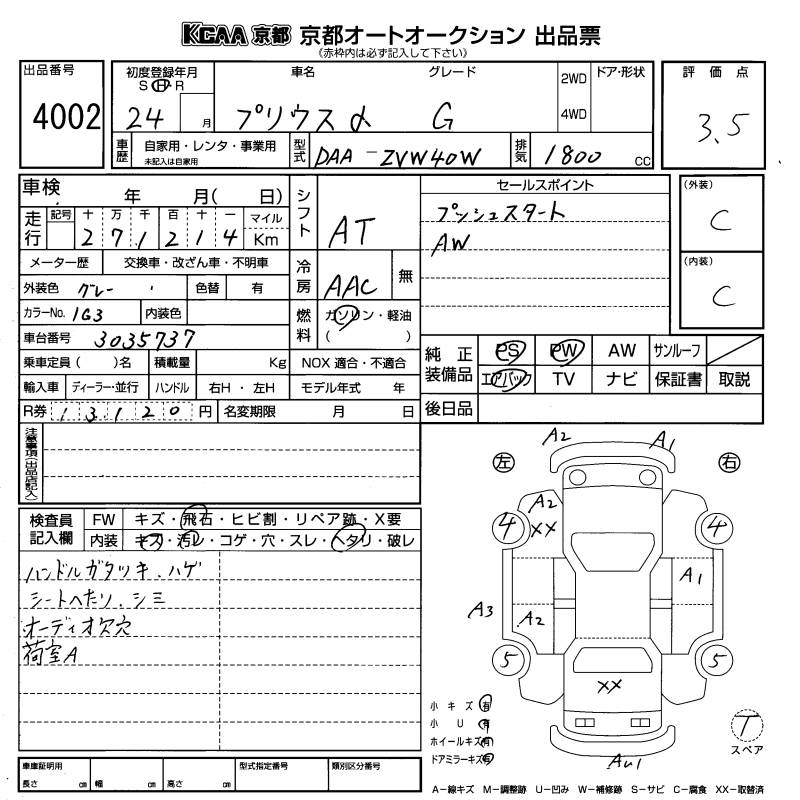 KCAA 京都 京都オートオークション 出品票
(赤枠内は必ず記入して下さい)
出品番号 初度登録年月 車名 グレード 2WD ドア・形状 評価点
S H R
4002 24 月 プリウスα G 4WD 3.5
車歴 自家用・レンタ・事業用 型式 DAA-ZVW40W 排気 1800 cc
未記入は自家用
車検 年 月( 日) シフト AT セールスポイント (外装)
走行 記号 十 万 千 百 十 一 マイル プッシュスタート C
2 7 1 2 1 4 Km AW
メーター歴 交換車・改ざん車・不明車 冷房 AAC 無 (内装)
外装色 グレー 色替 有 C
カラーNo. 1G3 内装色 燃料 ガソリン・軽油
( )
車台番号 3035737
乗車定員( )名 積載量 Kg NOX 適合・不適合 純正装備品 PS PW AW サンルーフ
輸入車 ディーラー・並行 ハンドル 右H・左H モデル年式 年 エアバック TV ナビ 保証書 取説
R券 1 3 1 2 0 円 名変期限 月 日 後日品
注意事項(出品店記入)
A2 A1
左 右
検査員記入欄 FW キズ・飛石・ヒビ割・リペア跡・X要
内装 キズ・汚レ・コゲ・穴・スレ・ヘタリ・破レ
4 A2 XX 4
ハンドルガタツキ.ハゲ
A1
シートへたり.シミ
A3 A2
オーディオ欠穴
荷室A
5 5
XX
小キズ 有
小U 有
ホイールキズ 有
ドアミラーキズ 有
T
スペア
AU1
車庫証明用 型式指定番号 類別区分番号
長さ cm 幅 cm 高さ cm
A-線キズ M-調整跡 U-凹み W-補修跡 S-サビ C-腐食 XX-取替済